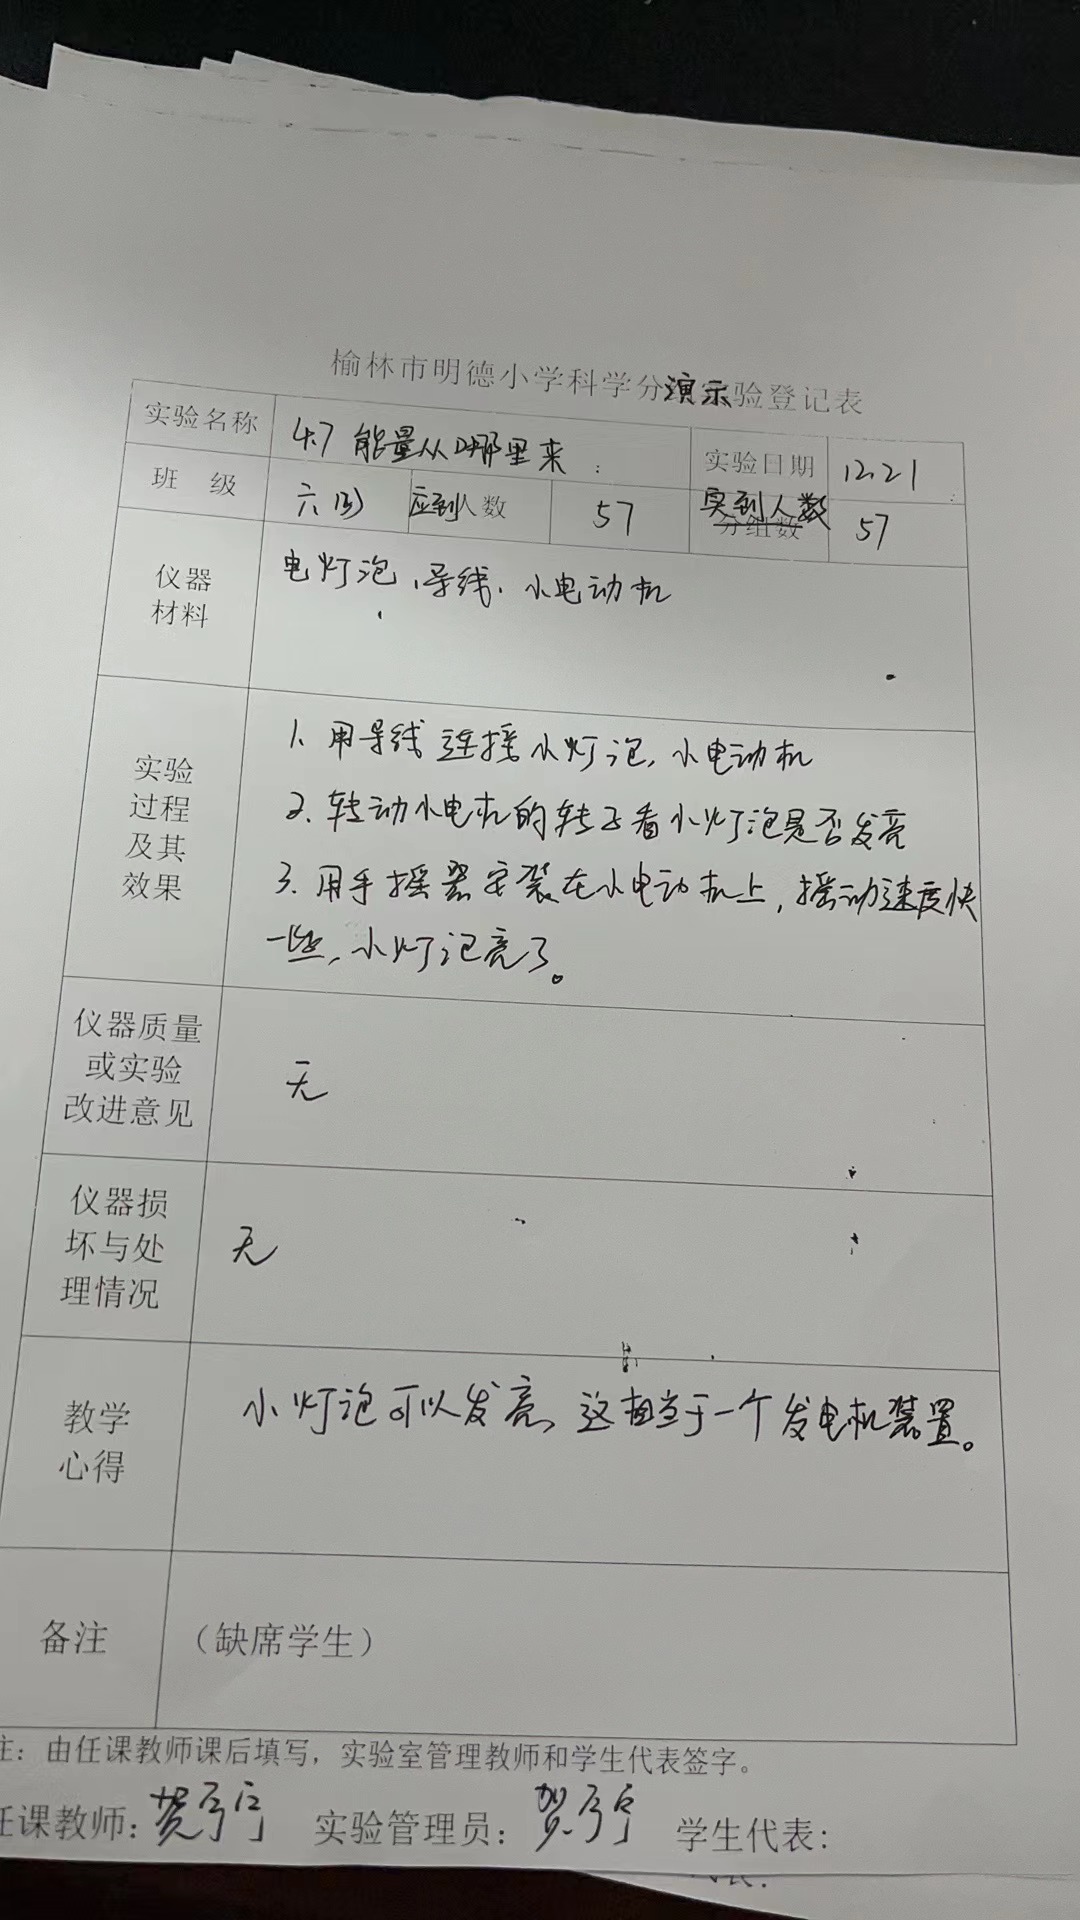 榆林市明德小学科学分演示验登记表
实验名称 4.7 能量从哪里来 实验日期 12.21
班 级 六(3) 应到人数 57 实到人数 57
分组数
仪器
材料
电灯泡、导线、小电动机
实验
过程
及其
效果
1. 用导线连接小灯泡,小电动机
2. 转动小电机的转子看小灯泡是否发亮
3. 用手摇器安装在小电动机上,摇动速度快
一些,小灯泡亮了。
仪器质量
或实验
改进意见
无
仪器损
坏与处
理情况
无
教学
心得
小灯泡可以发亮,这相当于一个发电机装置。
备注 (缺席学生)
注:由任课教师课后填写,实验室管理教师和学生代表签字。
任课教师: 实验管理员: 学生代表: